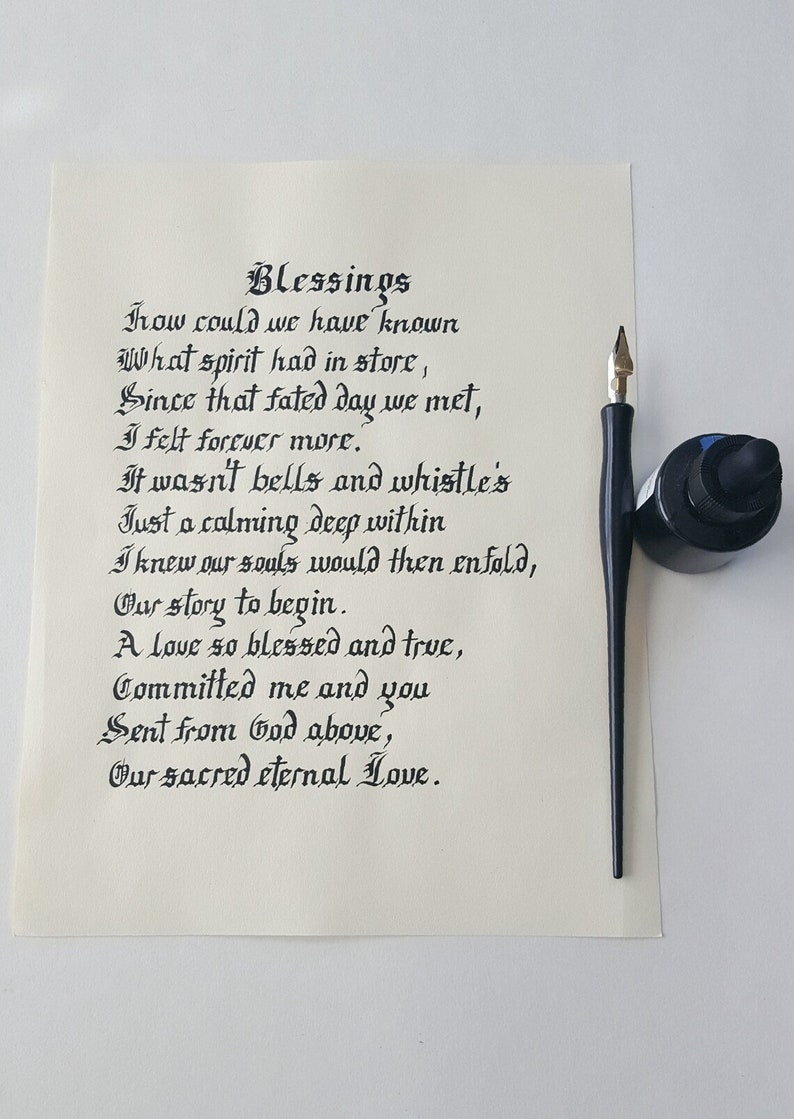 Blessings
How could we have known
What spirit had in store,
Since that fated day we met,
I felt forever more.
It wasn't bells and whistle's
Just a calming deep within
I knew our souls would then enfold,
Our story to begin.
A love so blessed and true,
Committed me and you
Sent from God above,
Our sacred eternal Love.